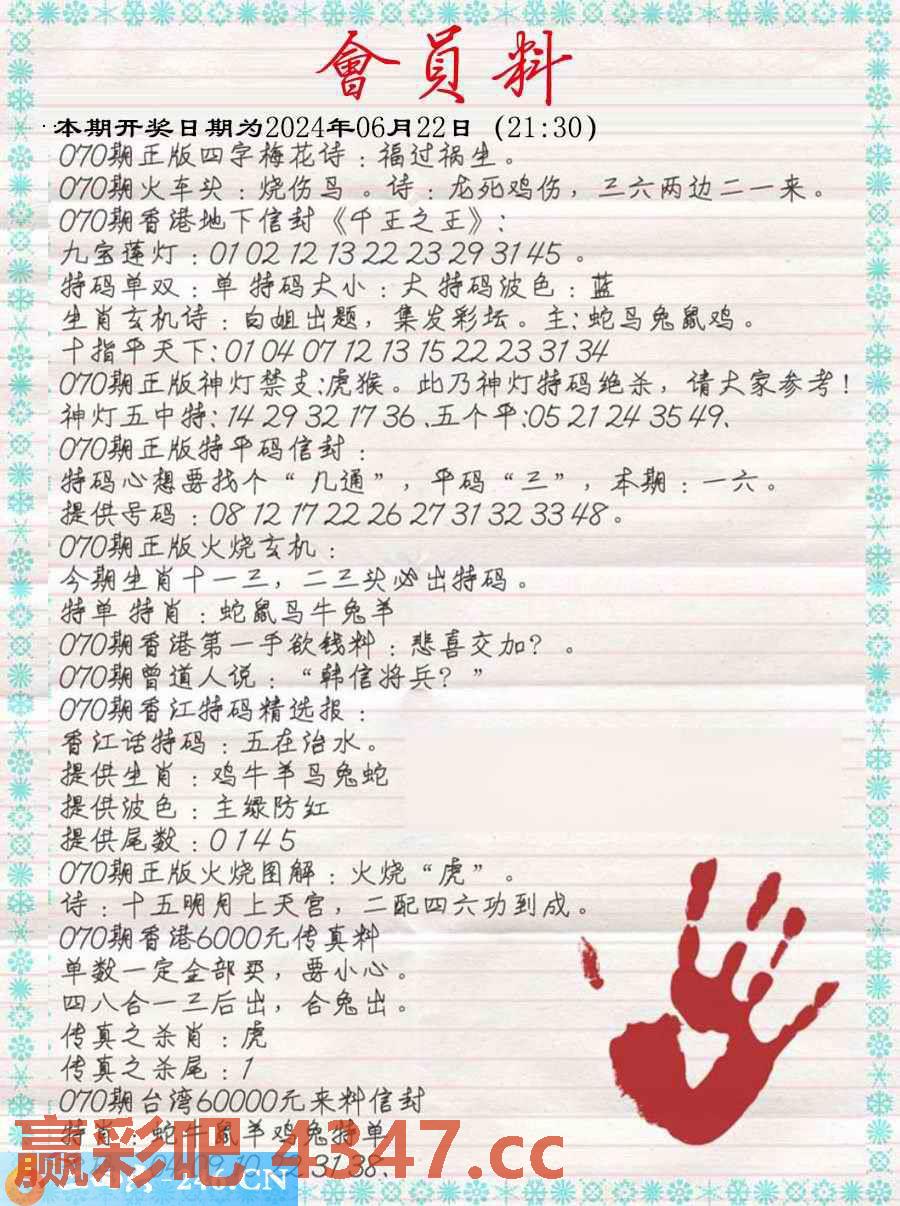 會員料
本期开奖日期为2024年06月22日（21:30）
070期正版四字梅花诗：福过祸生。
070期火车头：烧伤鸟 。诗：龙死鸡伤，三六两边二一来。
070期香港地下信封《千王之王》：
九宝莲灯：01 02 12 13 22 23 29 31 45 。
特码单双：单 特码大小：大 特码波色：蓝
生肖玄机诗：白姐出题，集发彩坛。主：蛇马兔鼠鸡。
十指平天下：01 04 07 12 13 15 22 23 31 34
070期正版神灯禁支：虎猴。此乃神灯特码绝杀，请大家参考！
神灯五中特：14 29 32 17 36 、五个平：05 21 24 35 49、
070期正版特平码信封：
特码心想要找个“ 几通”，平码“三”，本期：一六。
提供号码：08 12 17 22 26 27 31 32 33 48。
070期正版火烧玄机：
今期生肖十一三，二三头必出特码。
特单 特肖：蛇鼠马牛兔羊
070期香港第一手欲钱料：悲喜交加？ 。
070期曾道人说：“韩信将兵？”
070期香江特码精选报：
香江话特码：五在治水。
提供生肖：鸡牛羊马兔蛇
提供波色：主绿防红
提供尾数：0 1 4 5
070期正版火烧图解：火烧“虎”。
诗：十五明月上天宫，二配四六功到成。
070期香港6000元传真料
单数一定全部买，要小心。
四八合一三后出，合兔出。
传真之杀肖：虎
传真之杀尾：1
070期台湾60000元来料信封
特肖：蛇牛鼠羊鸡兔特单
04 09 10 22 31 38、
赢彩吧 4347.cc
246.CN